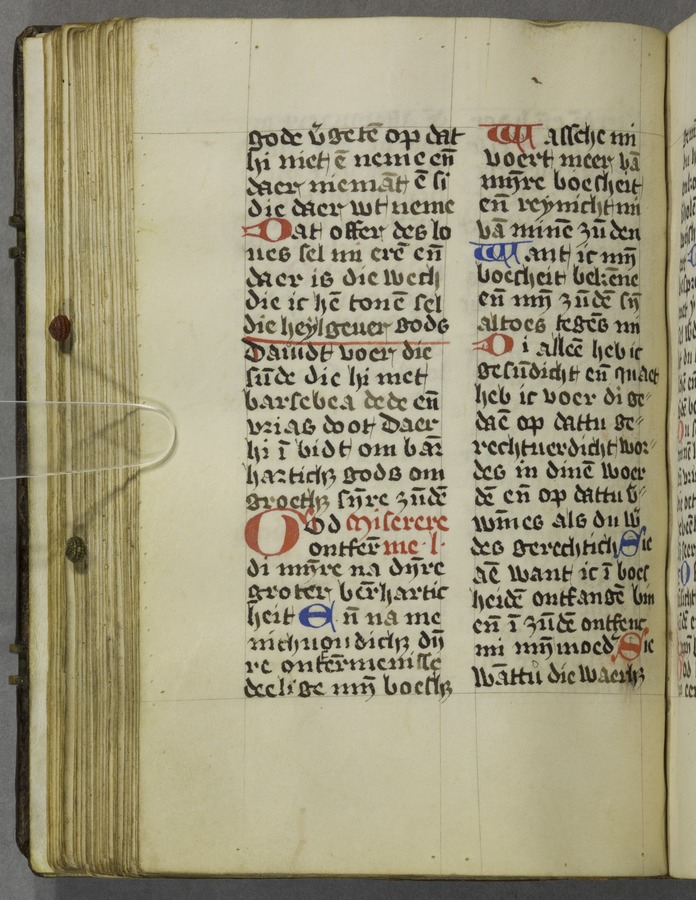 gode v̄getē op dat
hi niet ē neme eñ
daer niemāt ē si
die daer wt neme
Dat offer des lo
ues sel mi erē eñ
daer is die wech
die ic hē tonē sel
die heylgeuer gods
Dauidt voer die
sūde die hi met
barsebea dede eñ
vrias doot Daer
hi ī bidt om bar̄
hartich; gods om
groeth; sijre zūdē
God Miserere
ontfer̄ me·l·
di mijre na dijre
groter ber̄hartic
heit Eñ na me
nichuoudich; dij
re ontfer̄menisse
deelige mij̄ boesh;
Wassche mi
voert meer vā
mijre boesheit
eñ reynicht mi
vā minē zūden
Want ic mij̄
boesheit bekēne
eñ mij̄ zūdē sij̄
altoes tegēs mi
Di alleē heb ic
gesūdicht eñ quaet
heb ic voer di ge
daē op dattu ge
rechtuerdicht wor
des in dinē woer
dē eñ op dattu v̄
wīnes als du w̄
des gerechtich; Sie
aē want ic ī boes
heidē ontfangē bin
eñ ī zūdē ontfenc
mi mij̄ moed̄ Sie
wāttu die waerh;